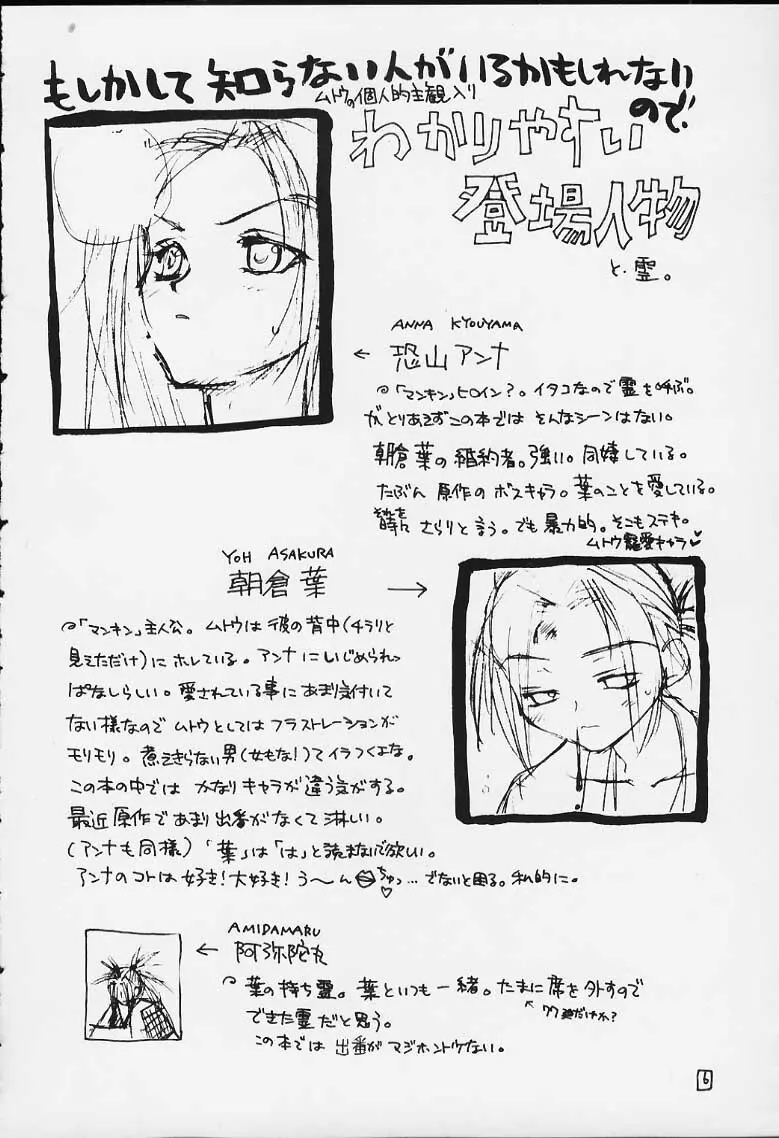 もしかして知らない人がいるかもしれない
ので
ムトウの個人的主観入り
わかりやすい
登場人物
と霊。
ANNA KYOUYAMA
← 恐山アンナ
「マンキン」ヒロイン?。イタコなので霊を呼ぶ。
がとりあえずこの本では そんなシーンはない。
朝倉葉の婚約者。強い。同棲している。
たぶん 原作のボスキャラ。葉のことを愛している。
それを
時に さらりと言う。でも暴力的。そこもステキ。
ムトウ寵愛キャラ♥
YOH ASAKURA
朝倉 葉 →
「マンキン」主人公。ムトウは彼の背中(チラリと
見えただけ)にホレている。アンナにいじめられっ
ぱなしらしい。愛されている事にあまり気付いて
ない様なので ムトウとしてはフラストレーションが
モリモリ。煮えきらない男(女もな!)てイラつくよな。
この本の中では かなりキャラが違う気がする。
最近原作であまり出番がなくて淋しい。
(アンナも同様)「葉」は「は」と読まないで欲しい。
アンナのコトは好き!大好き!う〜ん ちゅっ♡…でないと困る。私的に。
AMIDAMARU
← 阿弥陀丸
葉の持ち霊。葉といつも一緒。たまに席を外すので
できた霊だと思う。
この本では 出番がマジホントウない。
6